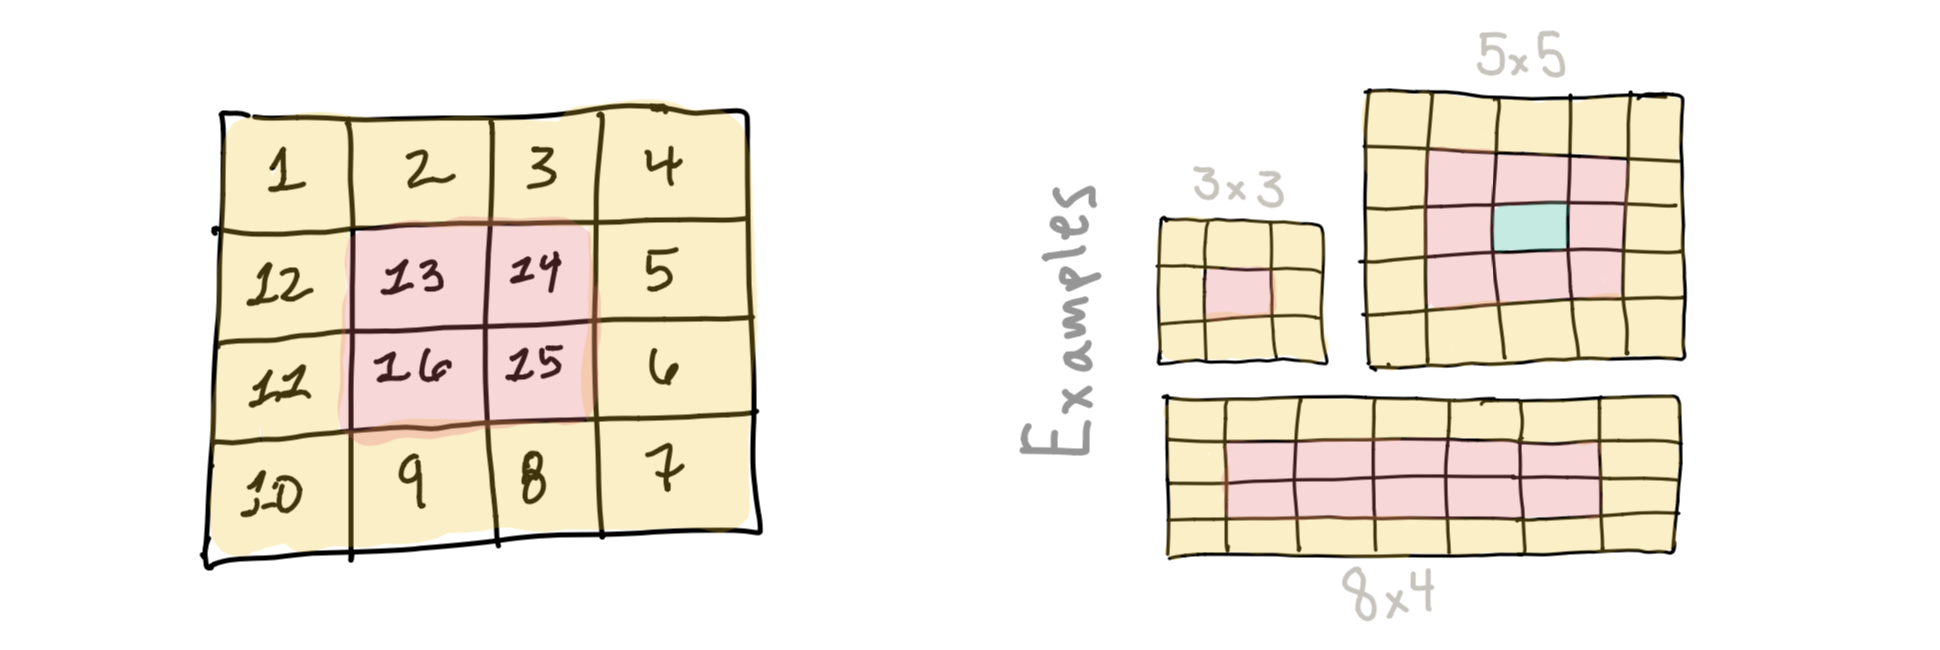 1 2 3 4
12 13 14 5
11 16 15 6
10 9 8 7
Examples
3x3
5x5
8x4